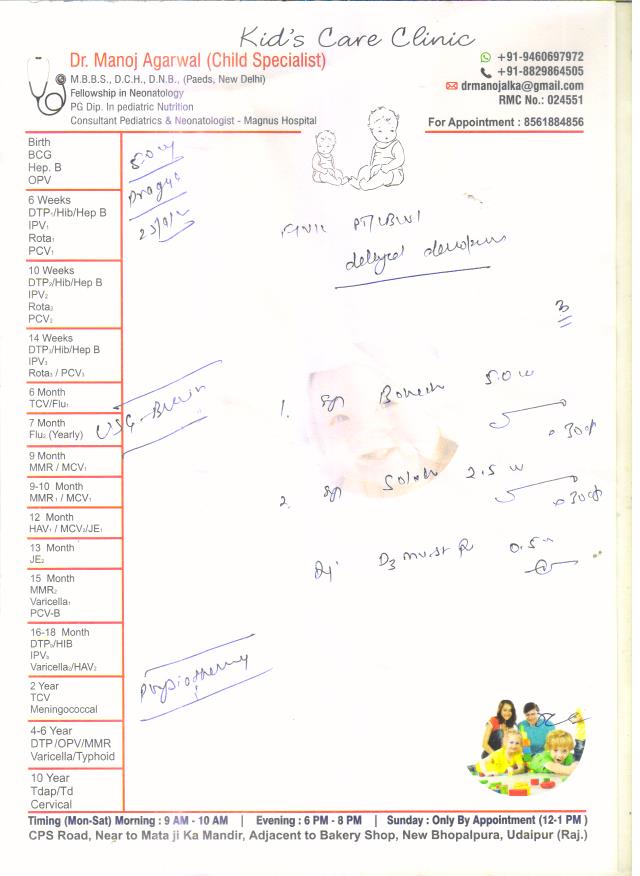 Kid's Care Clinic
Dr. Manoj Agarwal (Child Specialist)
M.B.B.S., D.C.H., D.N.B., (Paeds, New Delhi)
Fellowship in Neonatology
PG Dip. In pediatric Nutrition
Consultant Pediatrics & Neonatologist - Magnus Hospital
+91-9460697972
+91-8829864505
drmanojalka@gmail.com
RMC No.: 024551
For Appointment : 8561884856
Birth
BCG
Hep. B
OPV
6 Weeks
DTP₁/Hib/Hep B
IPV₁
Rota₁
PCV₁
10 Weeks
DTP₂/Hib/Hep B
IPV₂
Rota₂
PCV₂
14 Weeks
DTP₃/Hib/Hep B
IPV₃
Rota₃ / PCV₃
6 Month
TCV/Flu₁
7 Month
Flu₂ (Yearly)
9 Month
MMR / MCV₁
9-10 Month
MMR₁ / MCV₁
12 Month
HAV₁ / MCV₂/JE₁
13 Month
JE₂
15 Month
MMR₂
Varicella₁
PCV-B
16-18 Month
DTP₅/HIB
IPV₅
Varicella₂/HAV₂
2 Year
TCV
Meningococcal
4-6 Year
DTP /OPV/MMR
Varicella/Typhoid
10 Year
Tdap/Td
Cervical
PT/LBW
delayed
USG-Brain
1. Syp 5.0
2. Syp 2.5
D3 must 0.5
Physiotherapy
Timing (Mon-Sat) Morning : 9 AM - 10 AM | Evening : 6 PM - 8 PM | Sunday : Only By Appointment (12-1 PM )
CPS Road, Near to Mata ji Ka Mandir, Adjacent to Bakery Shop, New Bhopalpura, Udaipur (Raj.)